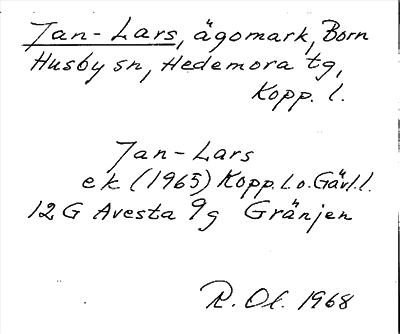 Jan-Lars, ägomark, Born
Husby sn, Hedemora tg,
Kopp. l.
Jan-Lars
ek (1965) Kopp. l. o. Gävl. l.
12G Avesta 9g Gränjen
R. Ol. 1968